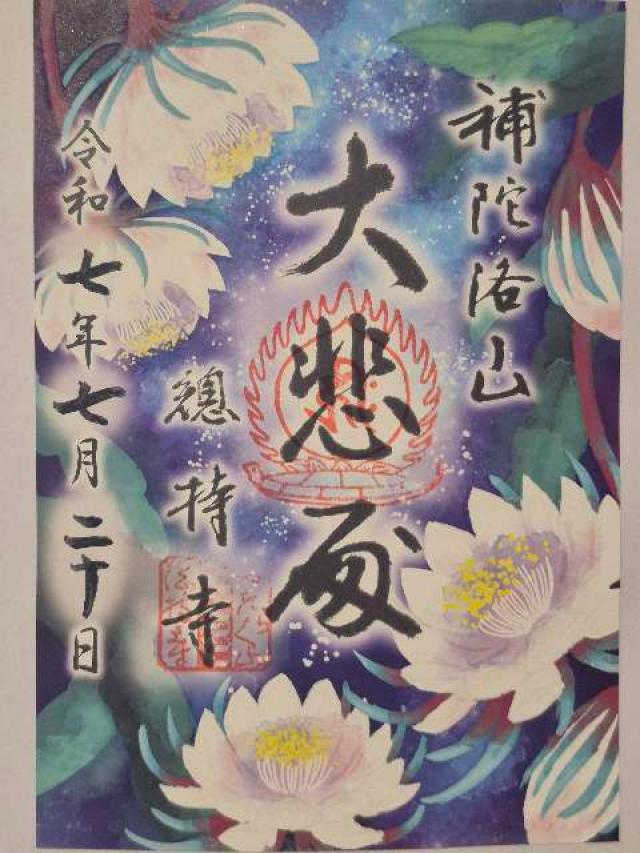 補陀洛山
大悲殿
總持寺
令和七年七月二十日